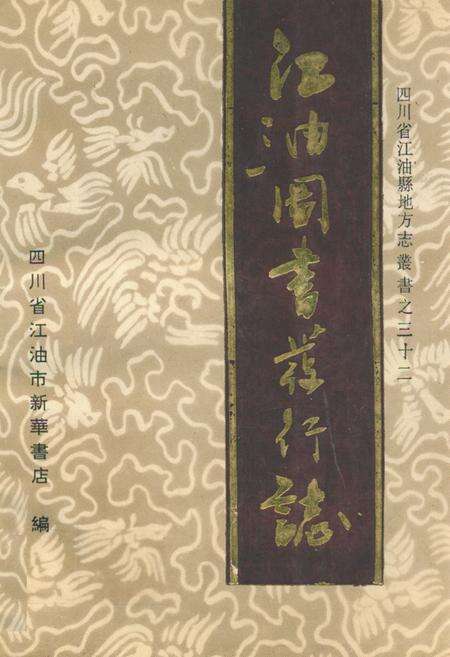 四川省江油縣地方志叢書之三十二
江油图書發行誌
四川省江油市新華書店 編